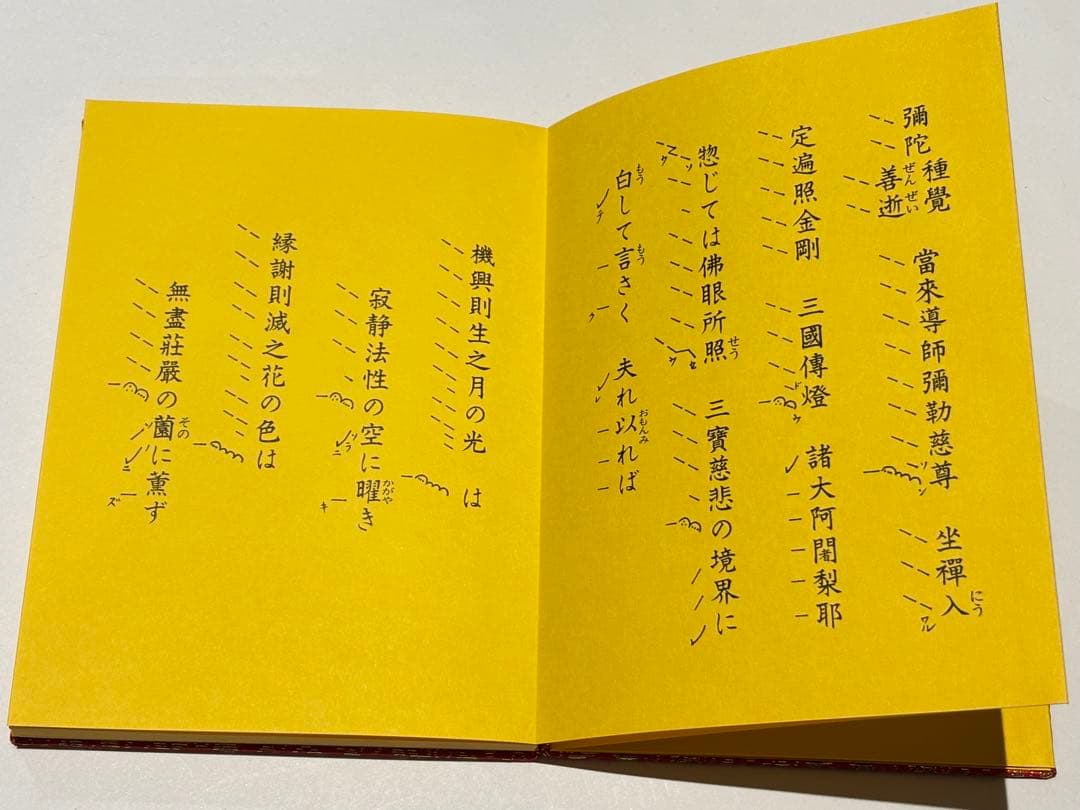 彌陀種覺善逝 當來導師彌勒慈尊 坐禪入
定遍照金剛 三國傳燈 諸大阿闍梨耶
惣じては佛眼所照 三寶慈悲の境界に
白して言さく 夫れ以れば
機興則生之月の光は
寂静法性の空に曜き
縁謝則滅之花の色は
無盡莊嚴の薗に薫ず